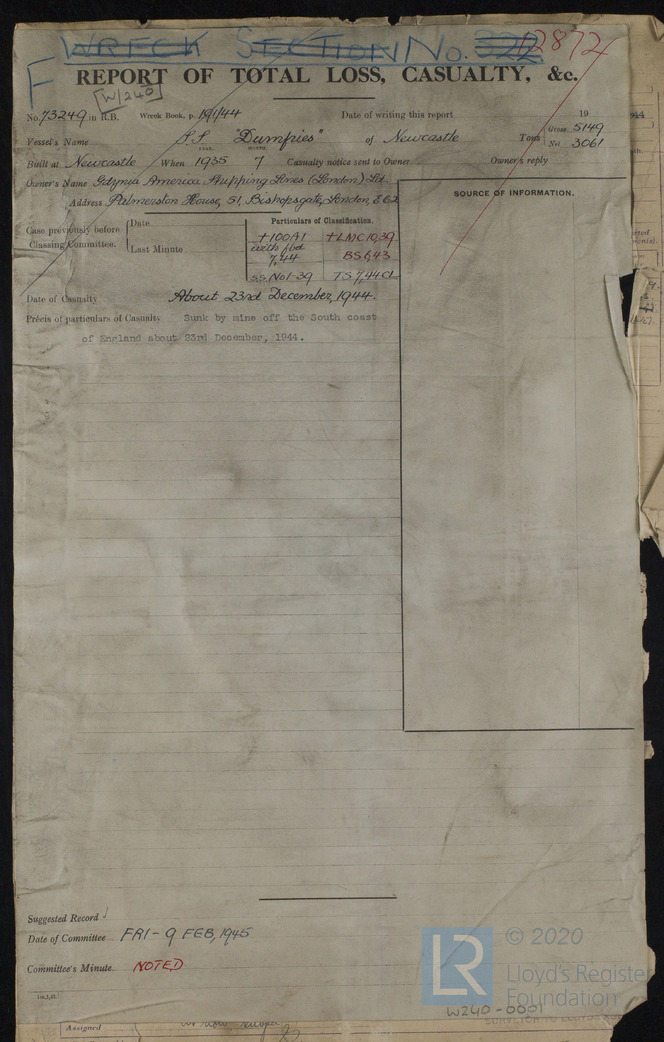 WRECK SECTION No. 322
12872
F
REPORT OF TOTAL LOSS, CASUALTY, &c.
W/240
No. 73249 in R.B. Wreck Book, p. 191/44 Date of writing this report 19
Vessel's Name S.S. "Dumfries" of Newcastle Tons Gross 5149
Net 3061
YEAR. MONTH
Built at Newcastle When 1935 7 Casualty notice sent to Owner Owner's reply
Owner's Name Gdynia America Shipping Lines (London) Ltd.
Address Palmerston House, 51, Bishopsgate, London, E.C.2
SOURCE OF INFORMATION.
Case previously before Classing Committee.
Date
Last Minute
Particulars of Classification.
+100A1 +LMC 10,39
with fbd
7,44 BS 6,43
S.S. No1-39 TS 7,44 CL
Date of Casualty About 23rd December, 1944.
Précis of particulars of Casualty Sunk by mine off the South coast
of England about 23rd December, 1944.
Suggested Record
Date of Committee FRI - 9 FEB, 1945
Committee's Minute NOTED
LR © 2020
Lloyd's Register
Foundation
W240-0001
Assigned